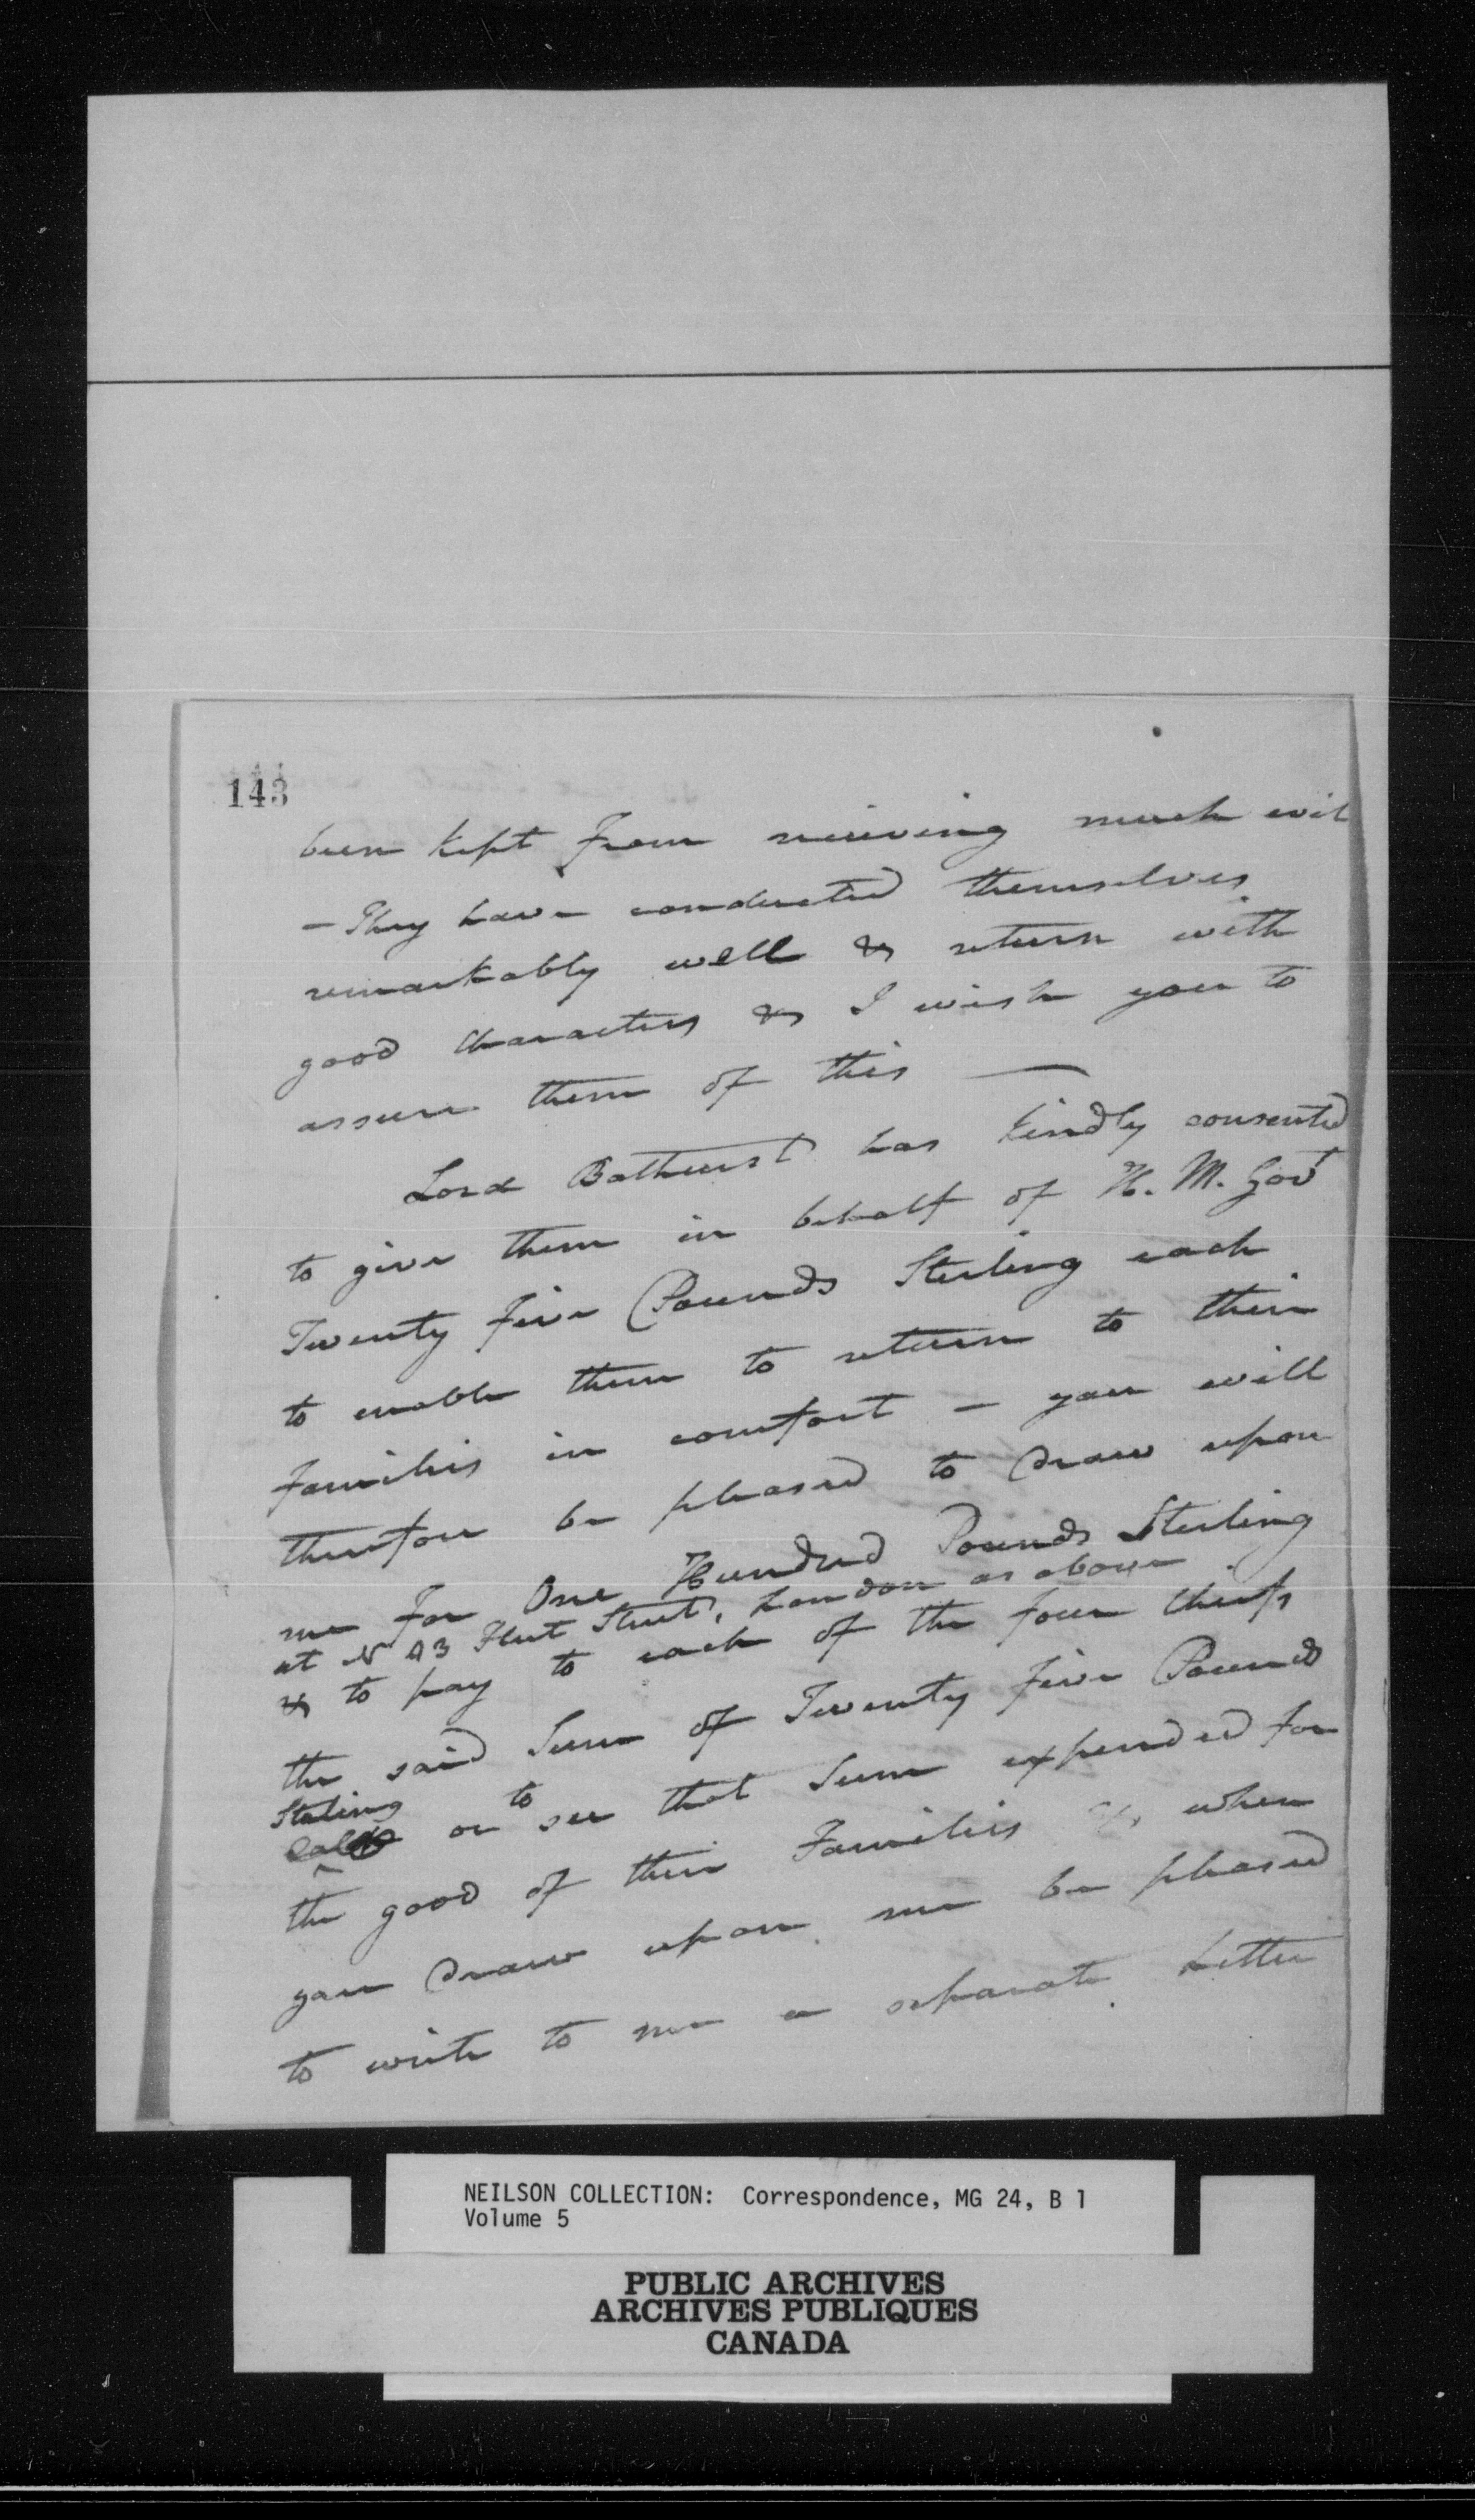 143
been kept from receiving much evil
— They have conducted themselves
remarkably well & return with
good Characters & I wish you to
assure them of this —
Lord Bathurst has kindly consented
to give them in behalf of H. M. Govt
Twenty five Pounds Sterling each
to enable them to return to their
families in comfort — you will
therefore be pleased to Draw upon
me for One Hundred Pounds Sterling
at No 93 Fleet Street, London as above
& to pay to each of the four Chiefs
the said Sum of Twenty five Pounds
Sterling to
or see that Sum expended for
the good of their Families & when
you Draw upon me be pleased
to write to me a separate Letter
NEILSON COLLECTION: Correspondence, MG 24, B 1
Volume 5
PUBLIC ARCHIVES
ARCHIVES PUBLIQUES
CANADA